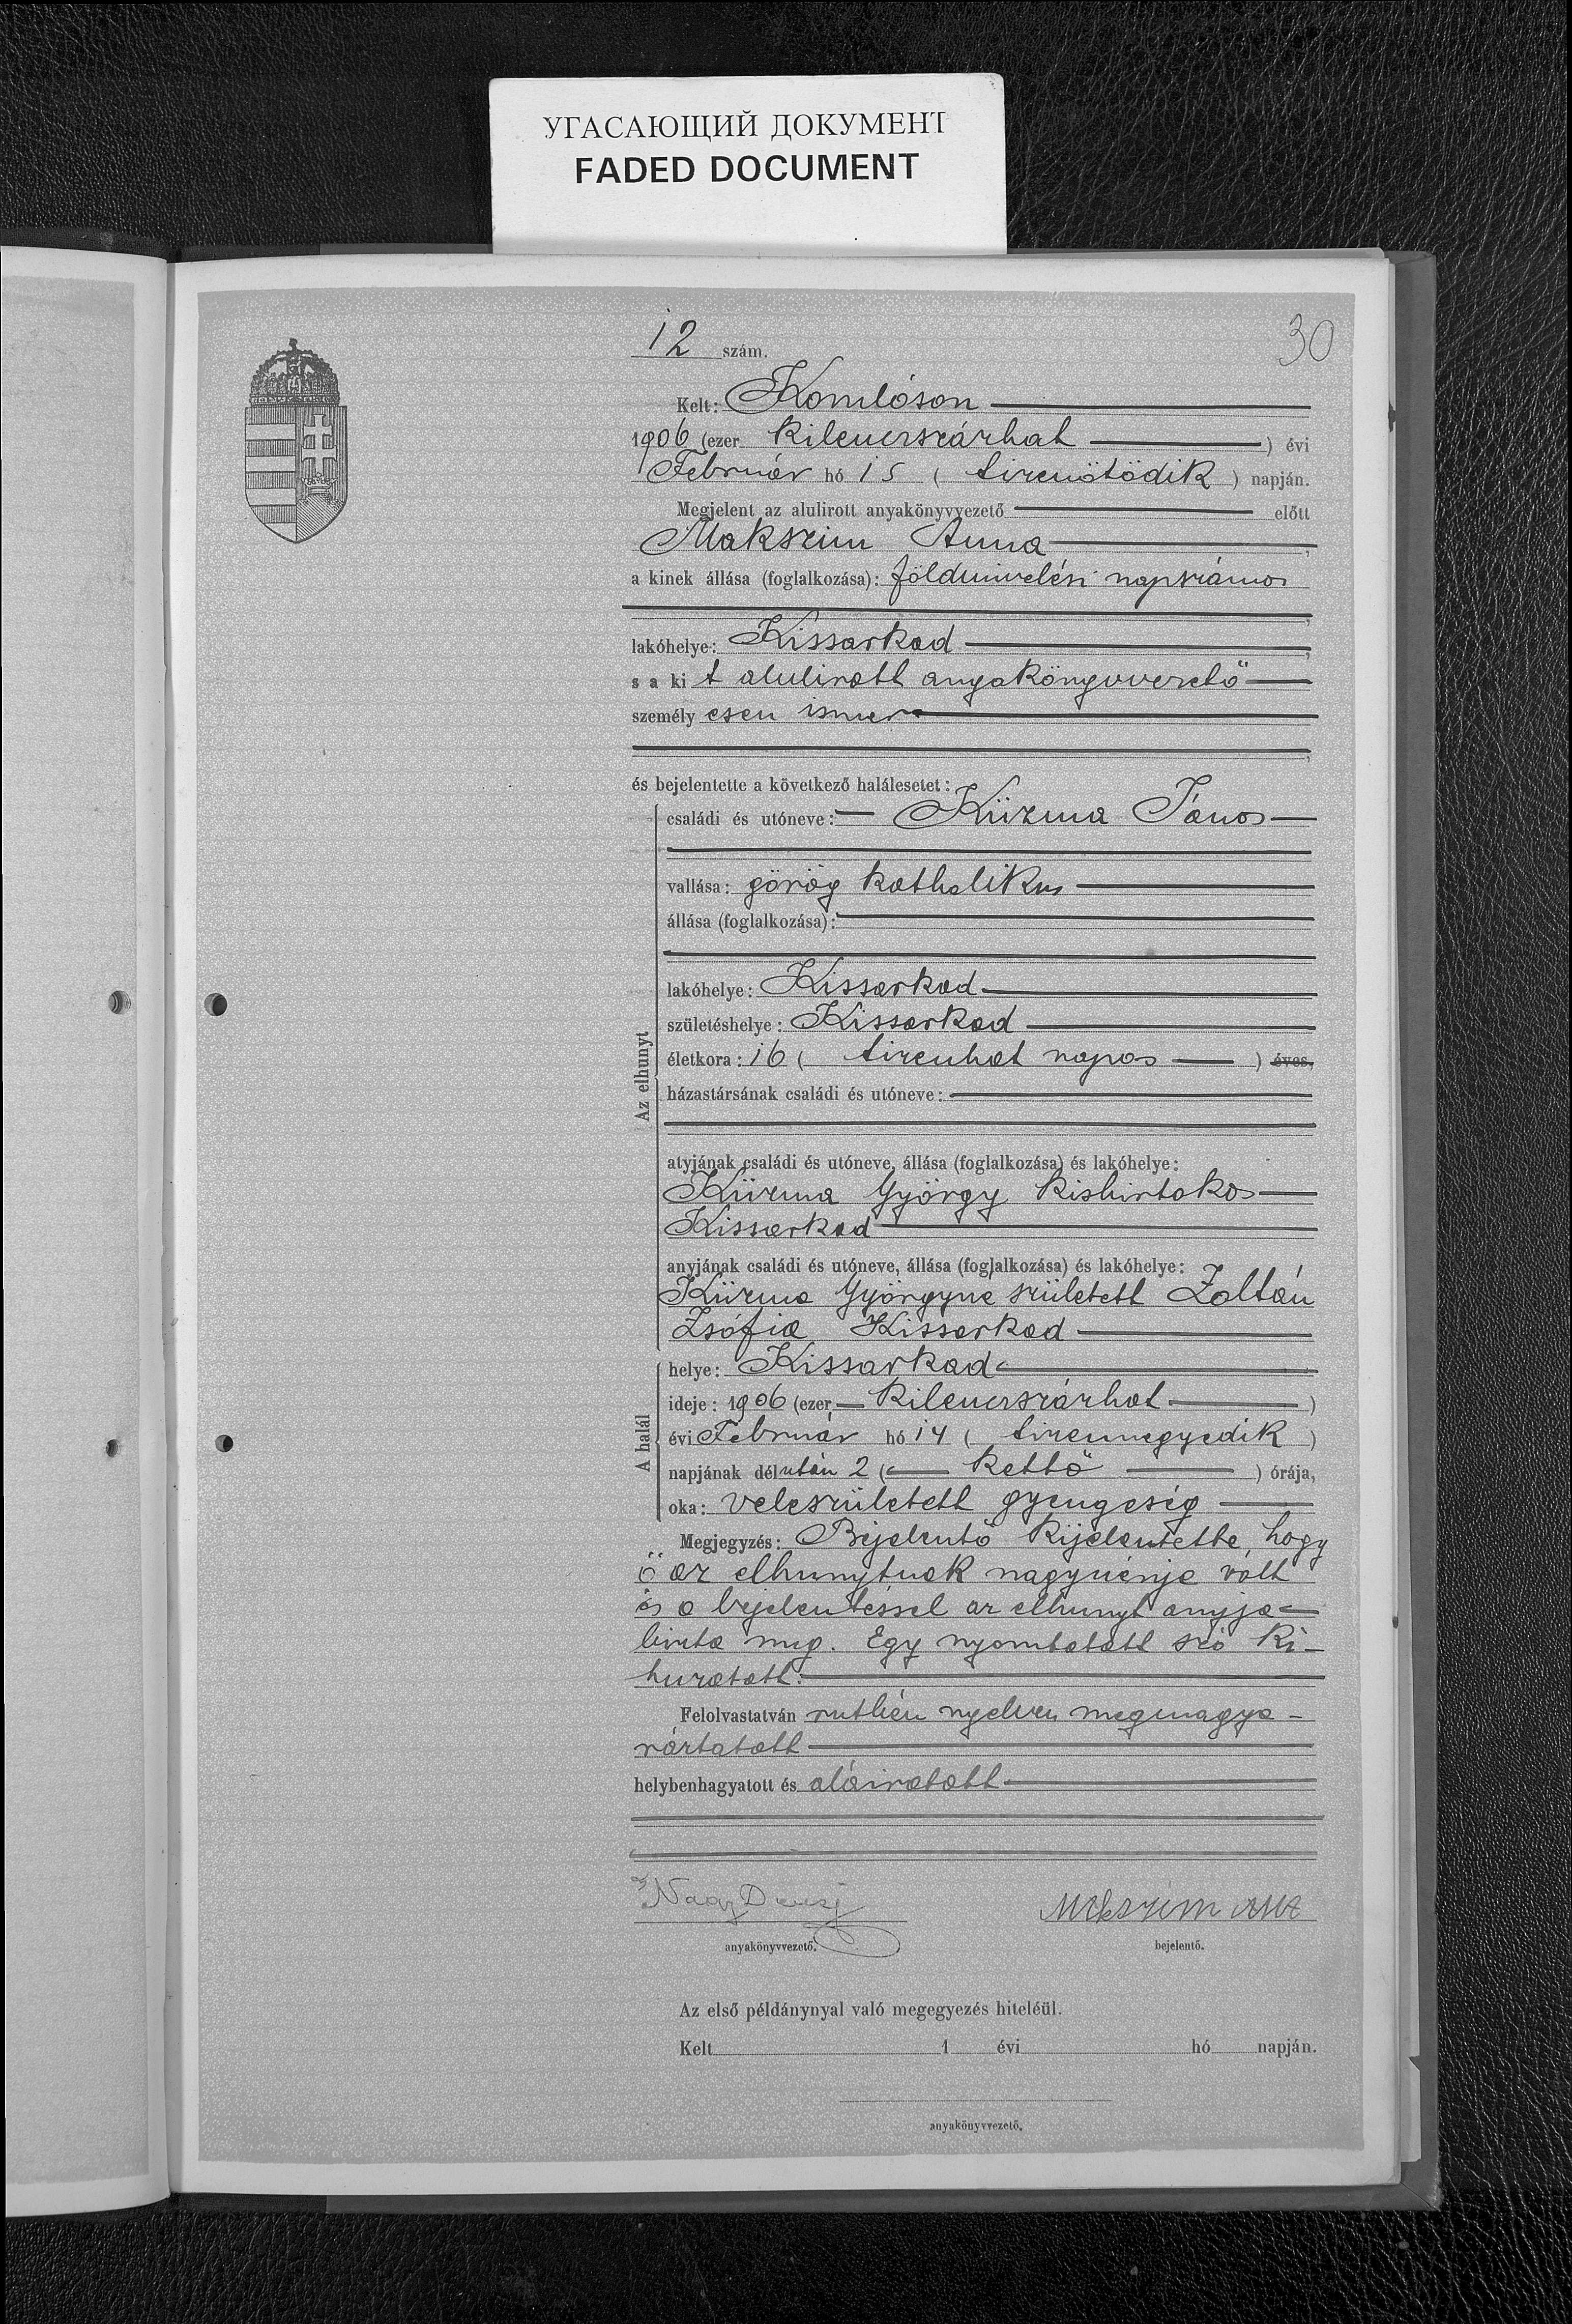 УГАСАЮЩИЙ ДОКУМЕНТ
FADED DOCUMENT
30
12 szám.
Kelt: Komlóson
1906 (ezer kilencszázhat ) évi
Február hó 15 ( tizenötödik ) napján.
Megjelent az alulirott anyakönyvvezető előtt
Makszim Anna,
a kinek állása (foglalkozása): földmivelési napszámos,
lakóhelye: Kissarkad,
s a ki t alulirott anyakönyvvezető
személy esen ismer,
és bejelentette a következő halálesetet:
Az elhunyt
családi és utóneve: Küzma János
vallása: görög katholikus
állása (foglalkozása):
lakóhelye: Kissarkad
születéshelye: Kissarkad
életkora: 16 ( tizenhat napos ) éves,
házastársának családi és utóneve:
atyjának családi és utóneve, állása (foglalkozása) és lakóhelye:
Küzma György kisbirtokos
Kissarkad
anyjának családi és utóneve, állása (foglalkozása) és lakóhelye:
Küzma Györgyne született Zoltán
Zsófia Kissarkad
A halál
helye: Kissarkad
ideje: 1906 (ezer kilencszázhat )
évi Február hó 14 ( tizennegyedik )
napjának délután 2 ( kettő ) órája,
oka: veleszületett gyengeség
Megjegyzés: Bejelentő kijelentette, hogy
ő az elhunytnak nagynénje volt
és a bejelentéssel az elhunyt anyja
bizta meg. Egy nyomtatott szó ki-
huzatott.
Felolvastatván ruthén nyelven megmagya-
ráztatott
helybenhagyatott és aláiratott
Nagy
anyakönyvvezető.
Makszim
bejelentő.
Az első példánynyal való megegyezés hiteléül.
Kelt 1 évi hó napján.
anyakönyvvezető.